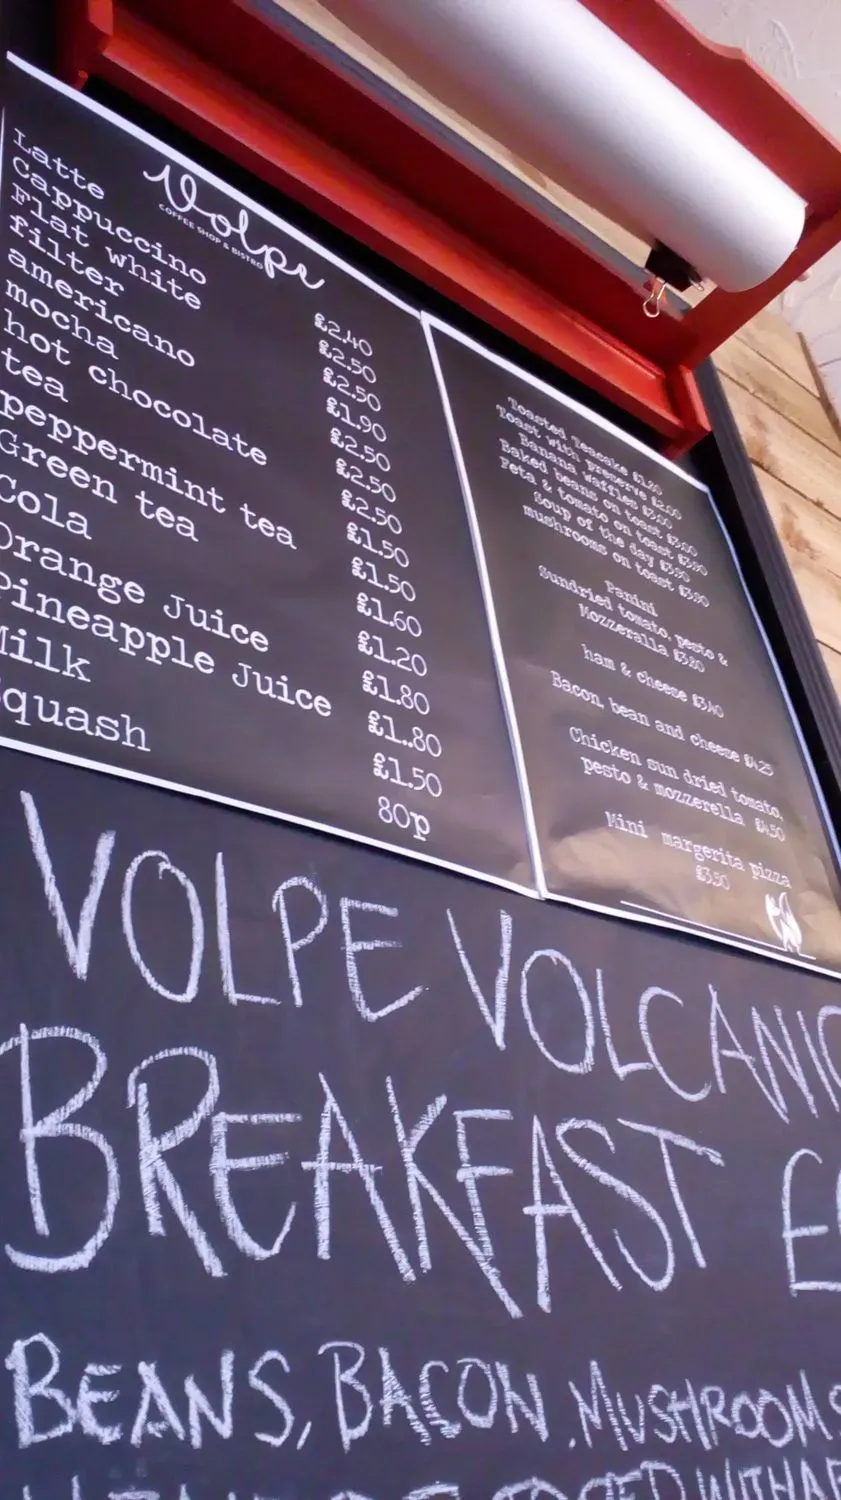 Volpe
COFFEE SHOP & BISTRO
Latte £2.40
Cappuccino £2.50
Flat white £2.50
filter £1.90
americano £2.50
mocha £2.50
hot chocolate £2.50
tea £1.50
peppermint tea £1.50
Green tea £1.60
Cola £1.20
Orange Juice £1.80
Pineapple Juice £1..80
Milk £1.50
Squash 80p
Toasted Teacake £1.80
Toast with preserve £2.00
Banana waffles £3.00
Baked beans on toast £3.00
Feta & tomato on toast £3.90
Soup of the day £3.90
mushrooms on toast £3.90
Panini
Sundried tomato, pesto &
Mozzeralla £3.80
ham & cheese £3.40
Bacon, bean and cheese £4.25
Chicken sun dried tomato,
pesto & mozzerella £4.50
Mini margerita pizza
£3.50
VOLPE VOLCANIC
BREAKFAST £
BEANS, BACON, MUSHROOMS